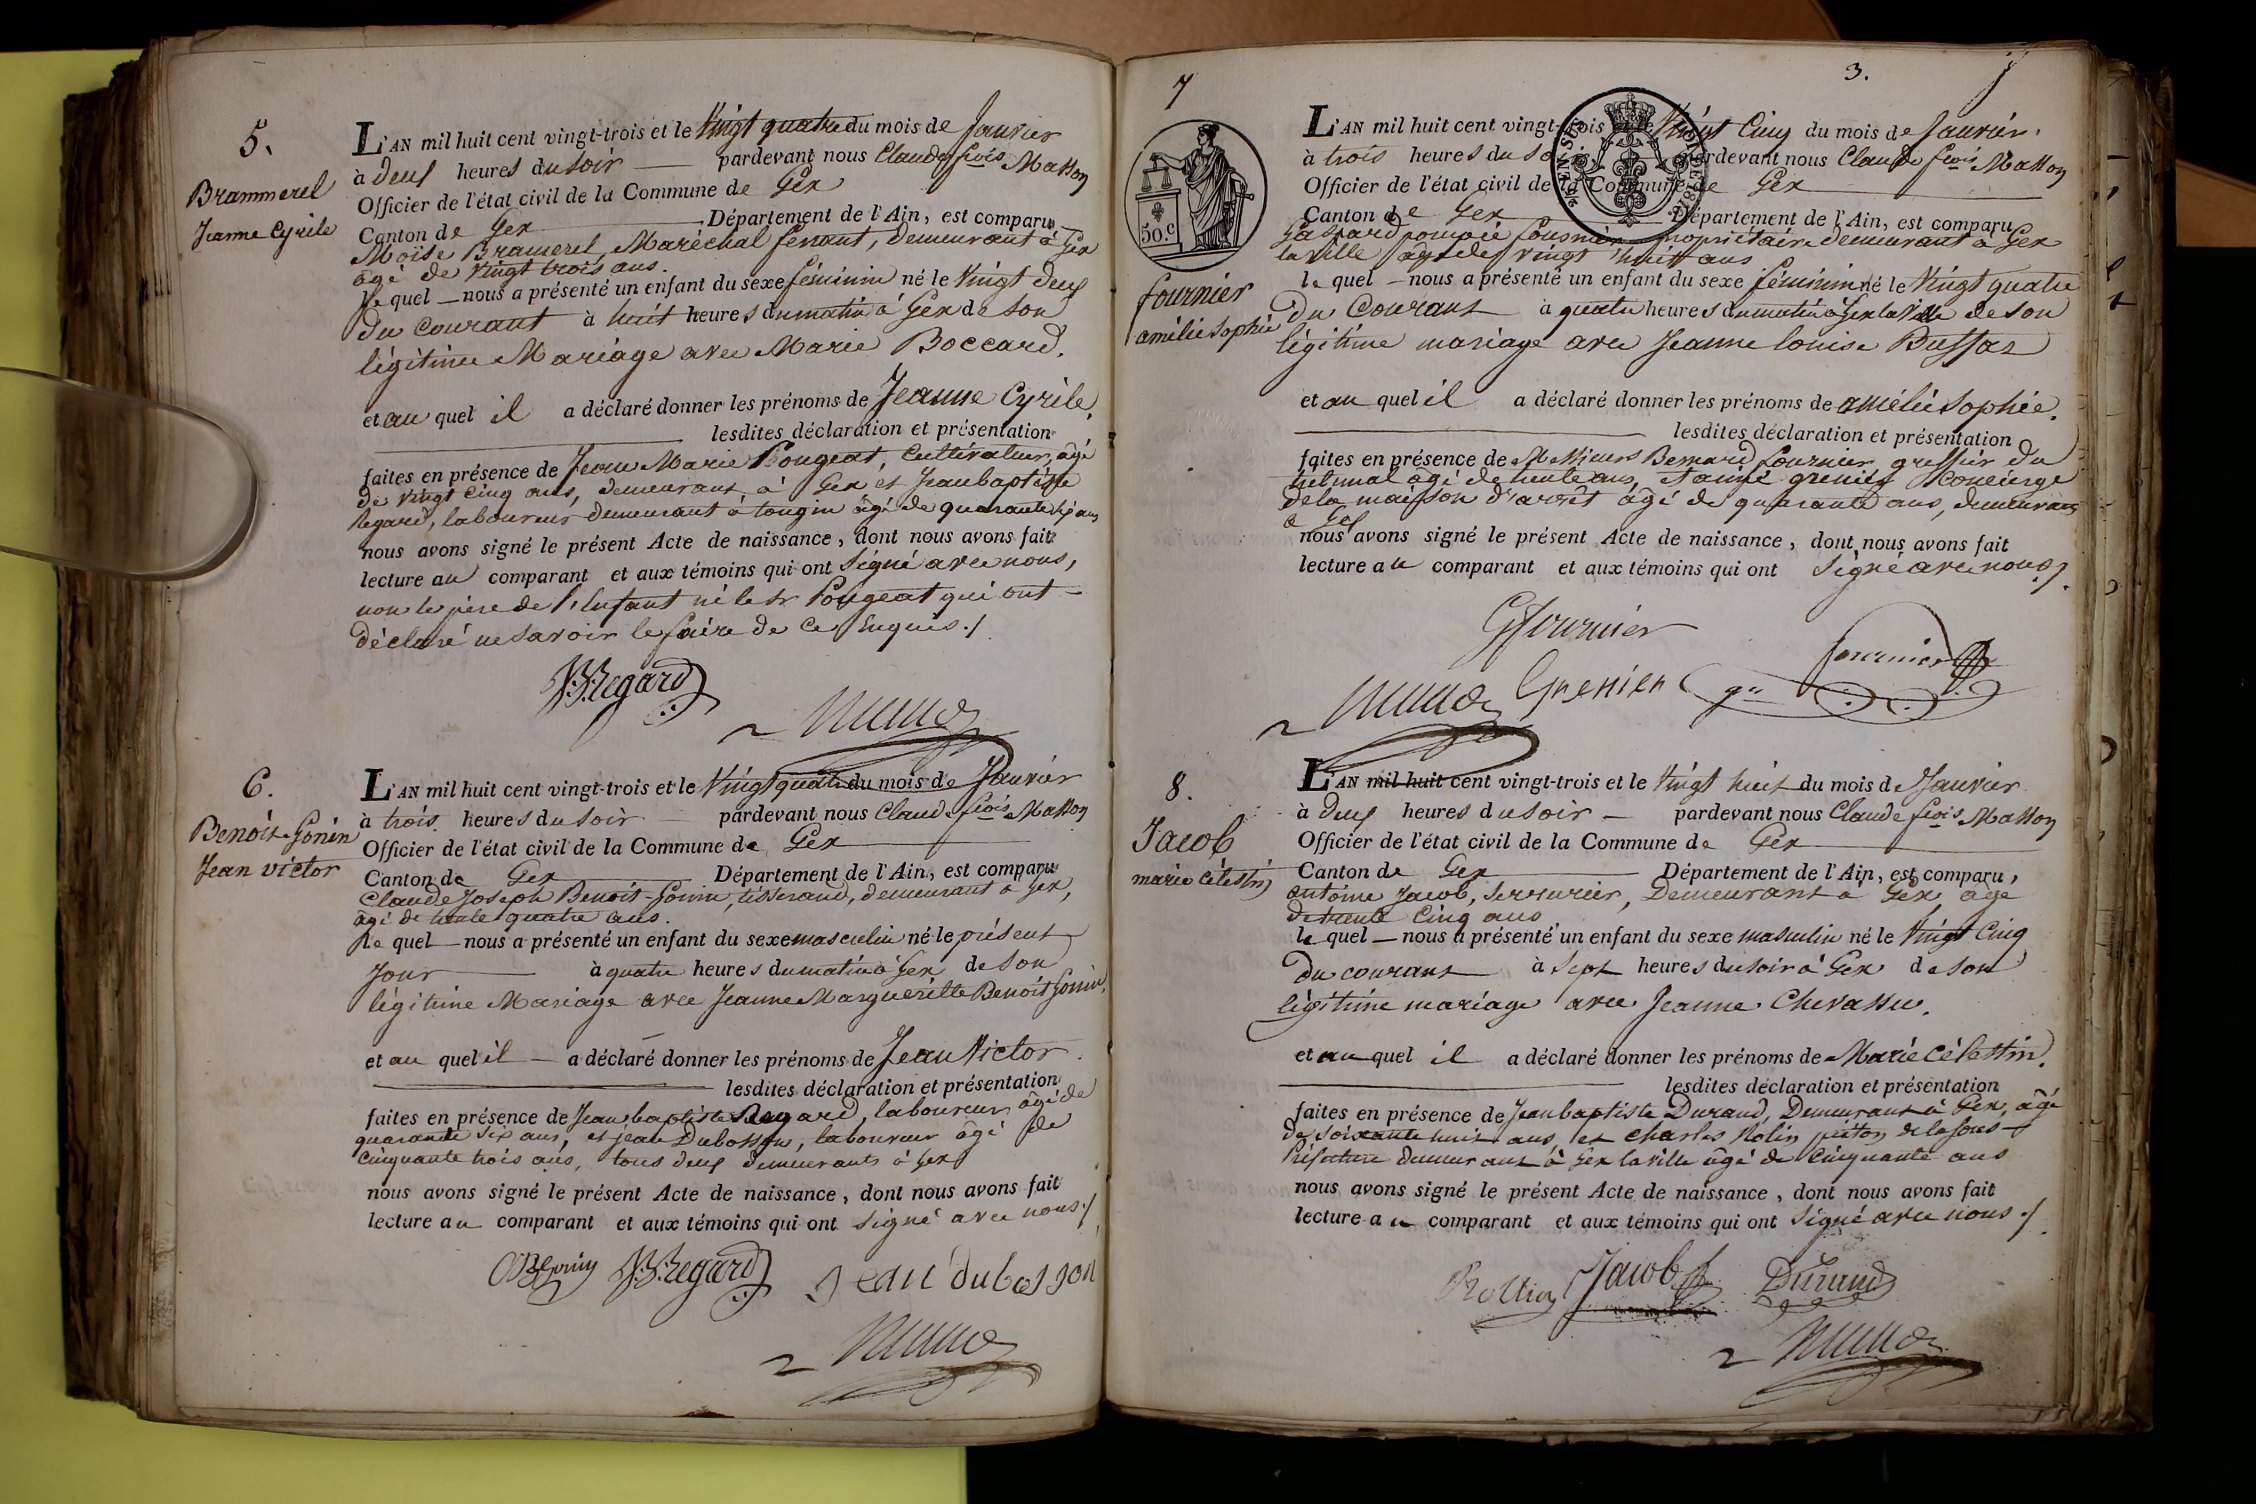 5.
Brammerel
Jeanne Cyrile
L'AN mil huit cent vingt-trois et le Vingt quatre du mois de Janvier
à deux heures du soir pardevant nous Claude fcois Masson
Officier de l'état civil de la Commune de Gex
Canton de Gex Département de l'Ain, est comparu
Moïse Bramerel, Maréchal ferrant, demeurant à Gex
âgé de vingt trois ans.
le quel nous a présenté un enfant du sexe féminin né le Vingt deux
du courant à huit heures du matin à Gex de son
légitime Mariage avec Marie Boccard.
et au quel il a déclaré donner les prénoms de Jeanne Cyrile.
lesdites déclaration et présentation
faites en présence de Jean Marie Pougeat, Cultivateur, âgé
de vingt cinq ans, demeurant à Gex et Jean baptiste
Regard, laboureur demeurant à tougin âgé de quarante six ans
nous avons signé le présent Acte de naissance, dont nous avons fait
lecture au comparant et aux témoins qui ont Signé avec nous,
non le père de l'Enfant ni le sr Pougeat qui ont
déclaré ne savoir le faire de ce Enquis ./
JBRegard
6.
Benoit-Gonin
Jean victor
L'AN mil huit cent vingt-trois et le Vingt quatre du mois de Janvier
à trois heures du soir pardevant nous Claude fcois Masson
Officier de l'état civil de la Commune de Gex
Canton de Gex Département de l'Ain, est comparu
Claude Joseph Benoit-Gonin, tisserand, demeurant à Gex,
âgé de trente quatre ans.
le quel nous a présenté un enfant du sexe masculin né le présent
Jour à quatre heures du matin à Gex de son
légitime Mariage avec Jeanne Margueritte Benoit Gonin.
et au quel il a déclaré donner les prénoms de Jean Victor.
lesdites déclaration et présentation
faites en présence de Jean baptiste Regard, laboureur âgé de
quarante six ans, et jean Dubosson, laboureur âgé de
cinquante trois ans, tous deux demeurants à Gex
nous avons signé le présent Acte de naissance, dont nous avons fait
lecture au comparant et aux témoins qui ont Signé avec nous ./
JBRegard Jean dubosson
7
3.
50.c
fournier
amélie Sophie
L'AN mil huit cent vingt-trois et le Vingt Cinq du mois de Janvier.
à trois heures du soir pardevant nous Claude fcois Masson
Officier de l'état civil de la Commune de Gex
Canton de Gex Département de l'Ain, est comparu
Gaspard fournier propriétaire demeurant à Gex
la Ville âgé de vingt huit ans
le quel nous a présenté un enfant du sexe féminin né le Vingt quatre
du Courant à quatre heures du matin à Gex la Ville de son
légitime mariage avec Jeanne louise
et au quel il a déclaré donner les prénoms de amélie Sophie.
lesdites déclaration et présentation
faites en présence de Messieurs Bernard fournier greffier du
tribunal âgé de trente ans, et aimé grenier Concierge
de la maison d'arrêt âgé de quarante ans, demeurans
à Gex
nous avons signé le présent Acte de naissance, dont nous avons fait
lecture au comparant et aux témoins qui ont Signé avec nous ./.
Gfournier
fournier
Grenier
8.
Jacob
marie Célestin
L'AN mil huit cent vingt-trois et le Vingt huit du mois de Janvier
à deux heures du soir pardevant nous Claude fcois Masson
Officier de l'état civil de la Commune de Gex
Canton de Gex Département de l'Ain, est comparu,
antoine Jacob, Serrurier, Demeurant à Gex, âgé
de trente Cinq ans
le quel nous a présenté un enfant du sexe masculin né le Vingt Cinq
du courant à Sept heures du soir à Gex de son
légitime mariage avec Jeanne Chevassu.
et au quel il a déclaré donner les prénoms de Marie Célestin.
lesdites déclaration et présentation
faites en présence de Jean baptiste Durand, Demeurant à Gex, âgé
de soixante huit ans, et Charles Rolin piéton de la Sous-
Préfecture demeurant à Gex la ville âgé de Cinquante ans
nous avons signé le présent Acte de naissance, dont nous avons fait
lecture au comparant et aux témoins qui ont Signé avec nous ./
Rollin Jacob Durand